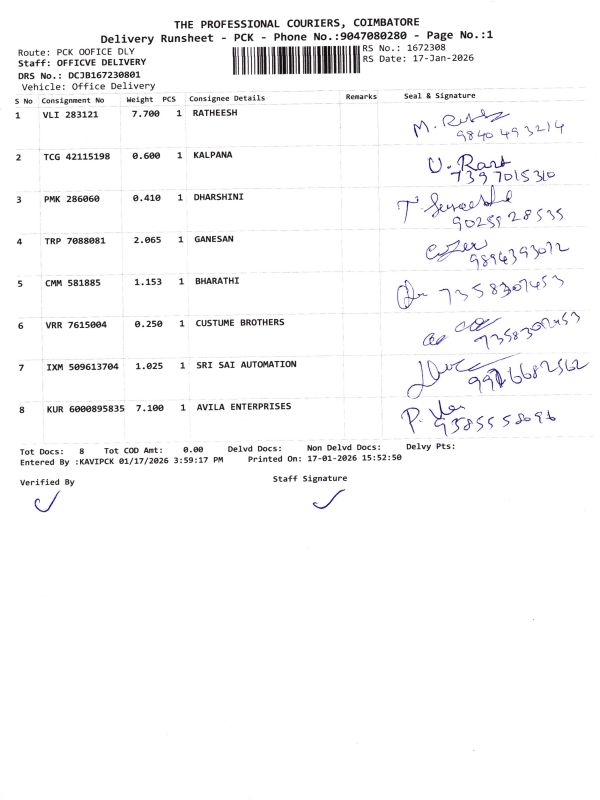 THE PROFESSIONAL COURIERS, COIMBATORE
Delivery Runsheet - PCK - Phone No.:9047080280 - Page No.:1
Route: PCK OOFICE DLY
RS No.: 1672308
Staff: OFFICVE DELIVERY
RS Date: 17-Jan-2026
DRS No.: DCJB167230801
Vehicle: Office Delivery
S No Consignment No Weight PCS Consignee Details Remarks Seal & Signature
1 VLI 283121 7.700 1 RATHEESH
9840493214
2 TCG 42115198 0.600 1 KALPANA
7397015310
3 PMK 286060 0.410 1 DHARSHINI
9025928535
4 TRP 7088081 2.065 1 GANESAN
9894393072
5 CMM 581885 1.153 1 BHARATHI
7358307453
6 VRR 7615004 0.250 1 CUSTUME BROTHERS
7 IXM 509613704 1.025 1 SRI SAI AUTOMATION
8 KUR 6000895835 7.100 1 AVILA ENTERPRISES
Tot Docs: 8 Tot COD Amt: 0.00 Delvd Docs: Non Delvd Docs: Delvy Pts:
Entered By :KAVIPCK 01/17/2026 3:59:17 PM Printed On: 17-01-2026 15:52:50
Verified By
Staff Signature